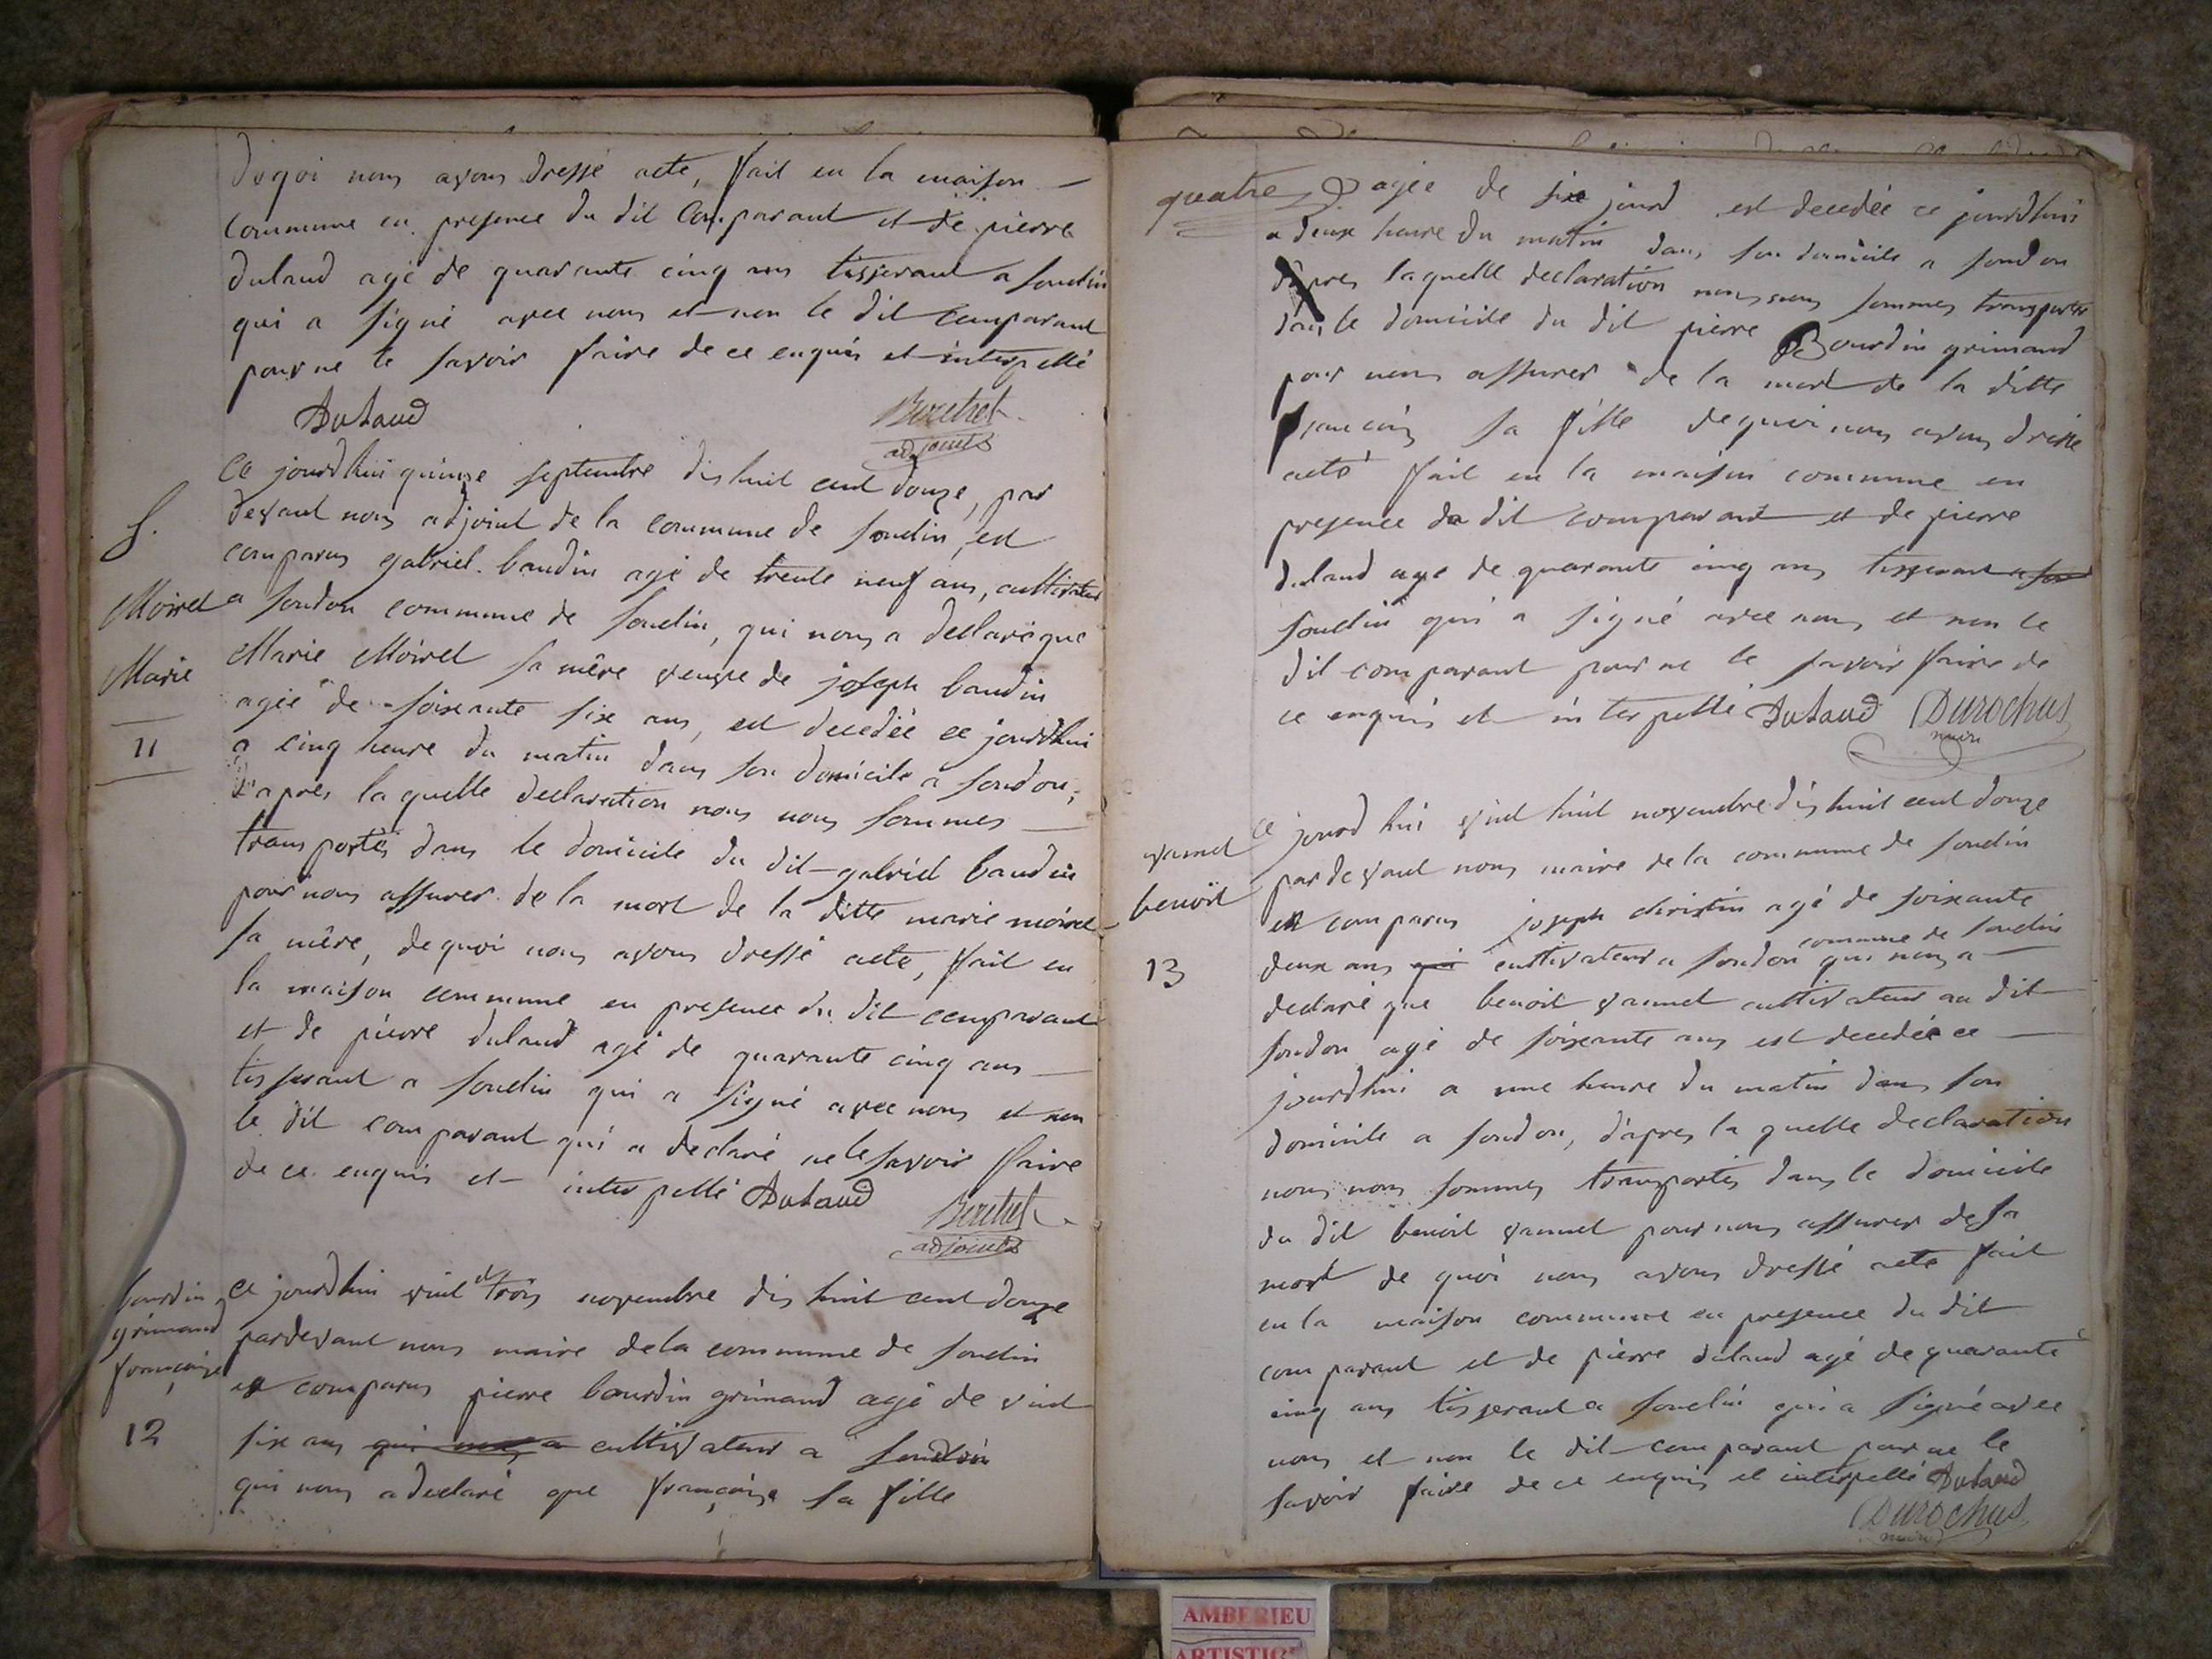 dequoi nous avons dressé acte, fait en la maison
commune en presence du dit comparant et de pierre
dulaud agé de quarante cinq ans tisserant a soudin
qui a signé avec nous et non le dit comparant
pour ne le savoir faire de ce enquis et interpellé
Dulaud
adjoint
Ce jourdhui quinze septembre dis huit cent douze, par
devant nous adjoint de la commune de soudin, est
comparus gabriel baudin agé de trente neuf ans, cultivateur
a soudon commune de soudin, qui nous a declaré que
Marie Moiret sa mêre veuve de joseph baudin
agée de soixante six ans, est decedée ce jourdhui
a cinq heure du matin dans son domicile a soudon,
d'aprés la quelle declaration nous nous sommes
transportés dans le domicile du dit gabriel baudin
pour nous assurer de la mort de la ditte marie moiret
sa mêre, dequoi nous avons dressé acte, fait en
la maison commune en presence du dit comparant
et de pierre dulaud agé de quarante cinq ans
tisserant a soudin qui a signé avec nous et non
le dit comparant qui a declaré ne le savoir faire
de ce enquis et interpellé Dulaud
adjoint
Moiret
Marie
11
Ce jourdhui vint et trois novembre dis huit cent douze
pardevant nous maire de la commune de soudin
est comparus pierre bourdin grimaud agé de vint
six ans qui nous a cultivateur a soudin
qui nous a declaré que françoise sa fille
bourdin
grimaud
françoise
12
quatre
agée de six jours est decedée ce jourdhui
a deux heure du matin dans son domicile a soudon
d'apres laquelle declaration nous nous sommes transportés
dans le domicile du dit pierre Bourdin grimaud
pour nous assurer de la mort de la ditte
françoise sa fille dequoi nous avons dressé
acte fait en la maison commune en
presence du dit comparant et de pierre
dulaud agé de quarante cinq ans tisserant a sou
soudin qui a signé avec nous et non le
dit comparant pour ne le savoir faire de
ce enquis et interpellé Dulaud Durochat
maire
Ce jourd hui vint huit novembre dis huit cent douze
par devant nous maire de la commune de soudin
est comparus joseph christin agé de soixante
deux ans qui cultivateur a soudon commune de soudin qui nous a
declaré que benoit vannel cultivateur au dit
soudon agé de soixante ans est decedée ce
jourdhui a une heure du matin dans son
domicile a soudon, d'apres la quelle declaration
nous nous sommes transportés dans le domicile
du dit benoit vannel pour nous assurer de sa
mort de quoi nous avons dressé acte fait
en la maison commune en presence du dit
comparant et de pierre dulaud agé de quarante
cinq ans tisserant a soudin qui a signé avec
nous et non le dit comparant pour ne le
savoir faire de ce enquis et interpellé Dulaud
Durochat
maire
vannel
benoit
13
AMBERIEU